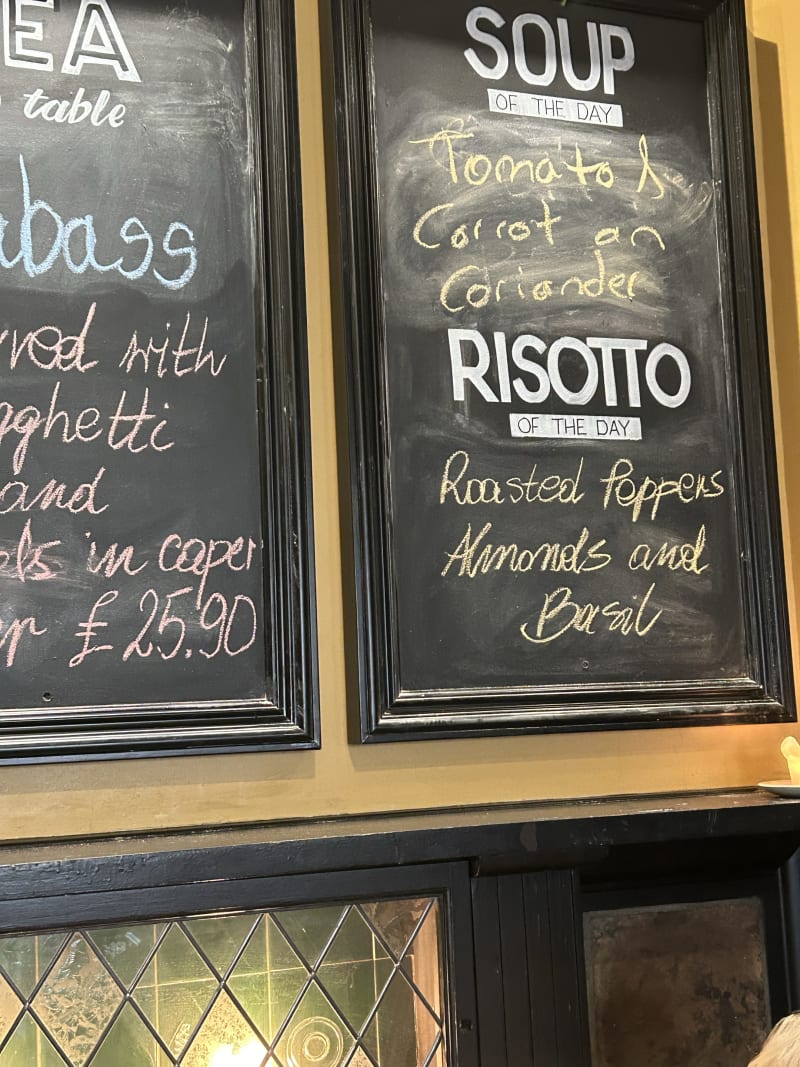 EA
table
abass
rved with
aghetti
and
ls in caper
r £25.90
SOUP
OF THE DAY
Tomato &
Carrot an
Coriander
RISOTTO
OF THE DAY
Roasted Peppers
Almonds and
Basil